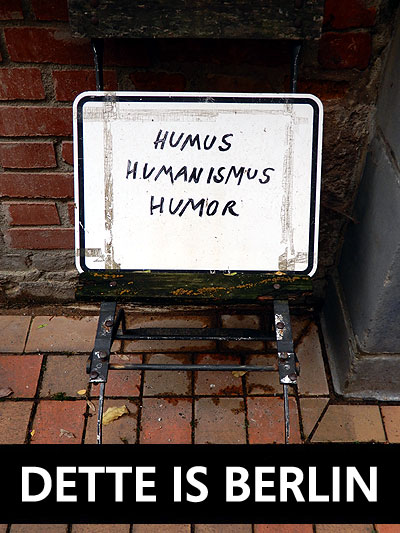 HUMUS
HUMANISMUS
HUMOR
DETTE IS BERLIN